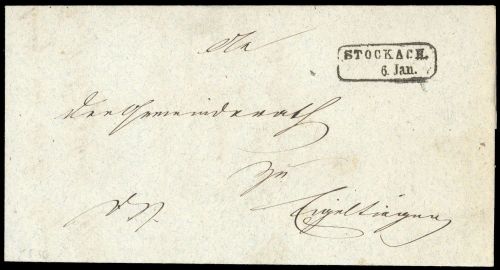 An
STOCKACH.
6. Jan.
den Gemeinderath
zu
Eigeltingen